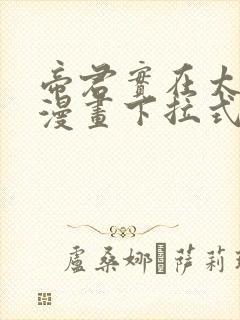 帝君實在太
漫畫下拉式
盧桑娜·薩莉